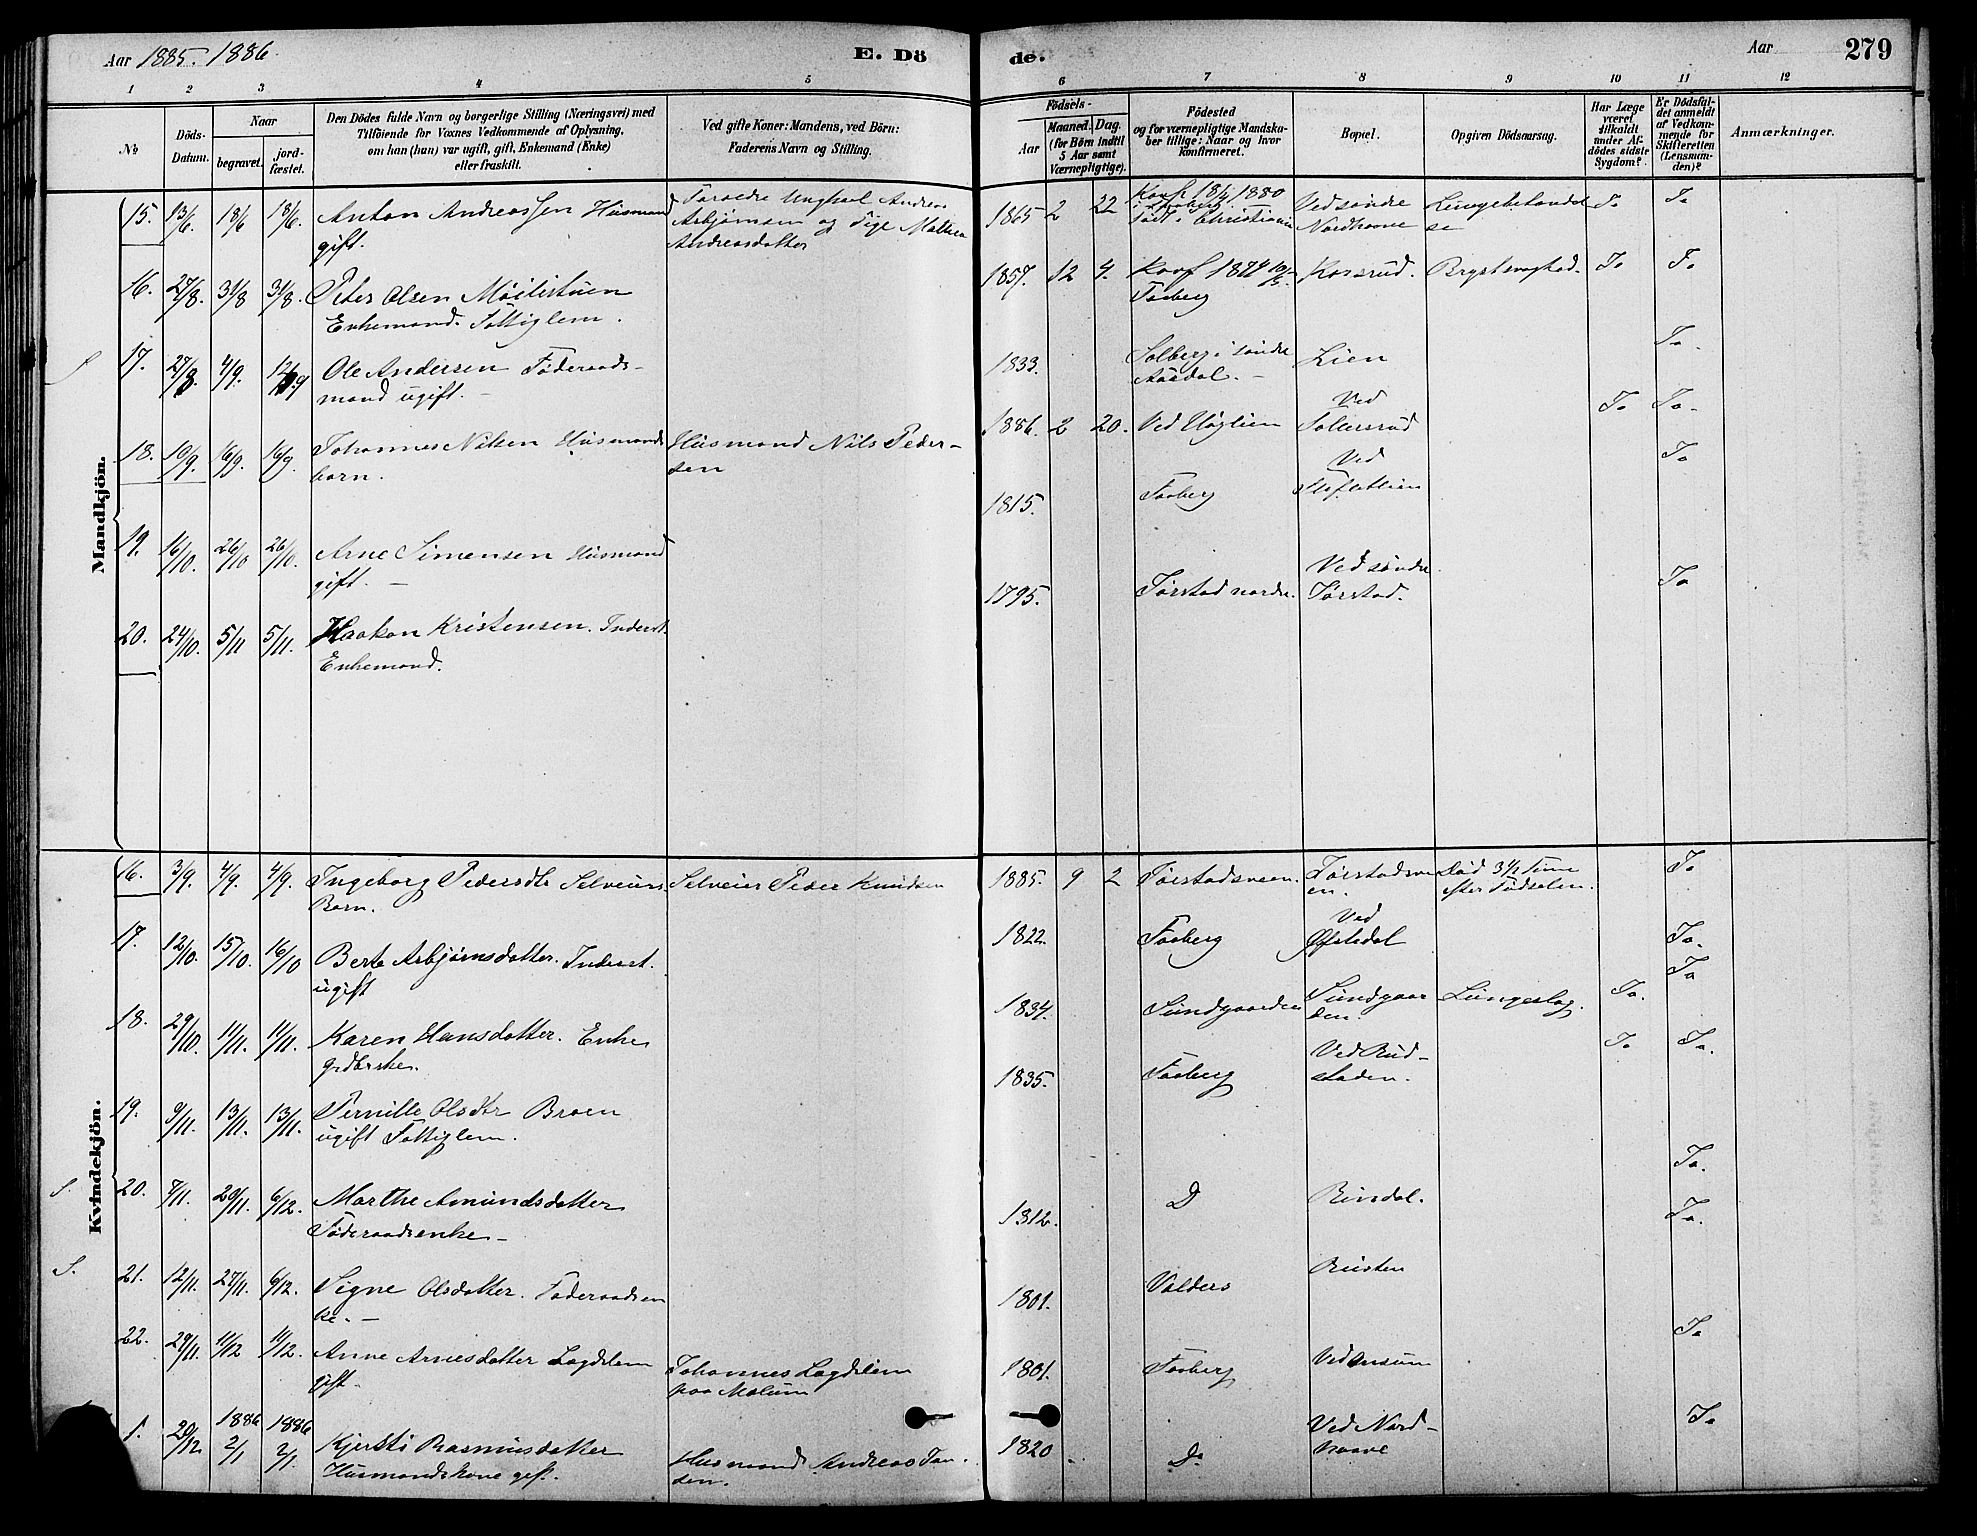 Aar 1885. 1886.
E. Dö
de.
Aar
279
1 2 3 4 5 6 7 8 9 10 11 12
№
Döds-
Datum.
Naar
begravet.
jord-
fæstet.
Den Dödes fulde Navn og borgerlige Stilling (Næringsvei) med
Tilföiende for Voxnes Vedkommende af Oplysning,
om han (hun) var ugift, gift, Enkemand (Enke)
eller fraskilt.
Ved gifte Koner: Mandens, ved Börn:
Faderens Navn og Stilling.
Födsels-
Aar
Maaned. Dag.
(for Börn indtil
5 Aar samt
Værnepligtige).
Födested
og for værnepligtige Mandska-
ber tillige: Naar og hvor
konfirmeret.
Bopæl.
Opgiven Dödsaarsag.
Har Læge
været
tilkaldt
under Af-
dödes sidste
Sygdom?
Er Dödsfal-
det anmeldt
af Vedkom-
mende for
Skifteretten
(Lensman-
den)?
Anmærkninger.
Mandkjön.
15. 13/6 18/6 18/6. Anton Andreassen Husmand
gift.
Foræld­re Ungkarl Andreas
Asbjørnsen og Pige Mathea
Andreasdatter
1865 2 22 Konf. 18/4 1880
født i Christiania
Ved søndre
Nordhaave
Lungebetændel
se
Ja Ja
16. 27/8. 31/8 31/8. Peter Olsen Möilistuen
Enkemand. Fattiglem.
1857. 12 4. Konf 1874
Faaberg
Korsrud. Brystsvaghed. Ja Ja
S 17. 27/8. 4/9. 12/9 Ole Andersen Föderaads-
mand ugift. -
1833. Solberg i søndre
Aasdal. -
Lien Ja.
18. 10/9. 16/9. 16/9. Johannes Nilsen Husmands
barn.
Husmand Nils Peder-
sen
1886. 2 20. Ved Höglien Ved
Solursrud
Ja Ja.
19. 16/10. 26/10 26/10. Arne Simensen Husmand
gift. -
1815. Faaberg Ved
Ja
20. 24/10. 5/11 5/11. Haakon Kristensen. Inderst.
Enkemand.
1795. Jörstad nordre. Ved søndre
Jörstad.
Ja
Kvindekjön.
16. 3/9. 4/9. 4/9. Ingeborg Pedersdtr Selveiers
Barn.
Selveier Peder Knudsen
1885. 9 2 Jörstadsveen. Jörstadsve
en.
Död 3 1/2 Time
efter Födselen.
Ja
17. 12/10. 15/10. 16/10 Berte Asbjørnsdatter. Inderst.
ugift
1822. Faaberg Ved
Öfsledal
Ja.
18. 29/10. 11/11. 11/11. Karen Hansdatter. Enke
1834. Sundgaarden Sundgaar
den.
Lungeslag. Ja. Ja
19. 9/11. 13/11. 13/11. Pernille Olsdtr Broen
ugift Fattiglem.
1835. Faaberg Ved Rud-
staden.
Ja Ja.
S. 20. 7/11. 20/11. 6/12. Marthe Amundsdatter
Föderaadsenke -
1812. D Rindal. Ja.
S. 21. 12/11. 27/11. 6/12. Signe Olsdatter. Föderaadsen
ke. -
1801. Valders Rusten Ja.
22. 29/11. 11/12 11/12. Anne Arnesdatter Lagdslem
gift.
Johannes Lagdslem
paa Molum
1801. Faaberg Ved Ja
1. 20/12 1886
2/1 1886
2/1. Kjersti Rasmusdatter
Husmandskone gift.
Husmand Andreas Jan-
sen.
1820 D. Ved Nord-
haave
Ja